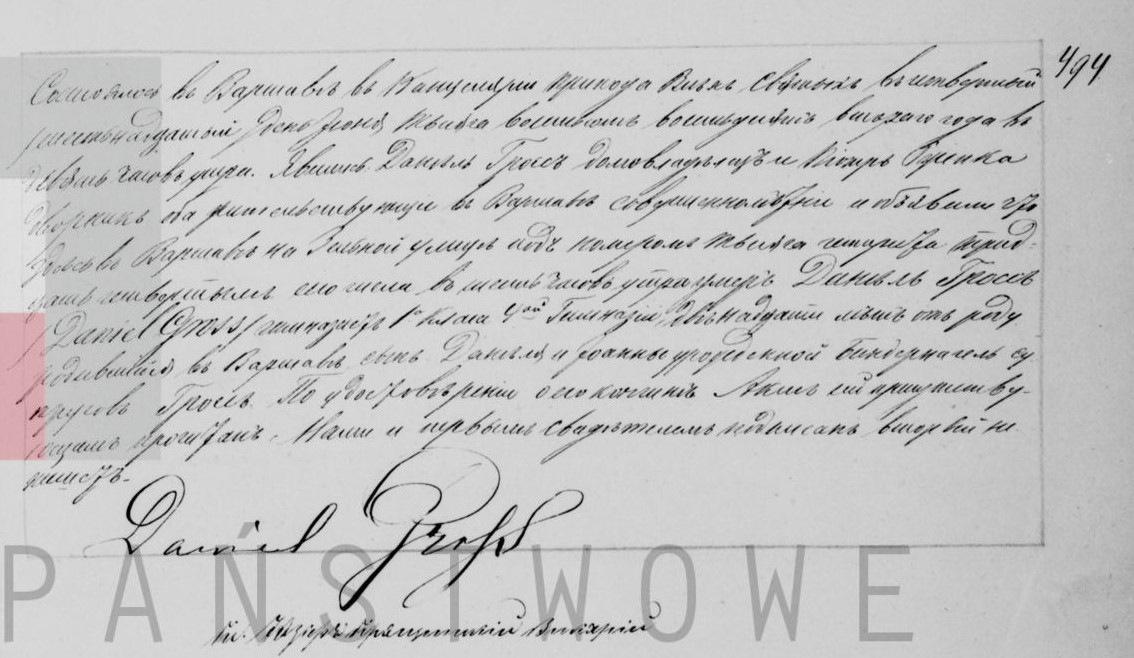 494
Состоялось въ Варшавѣ въ Канцелярiи прихода Всѣхъ Святыхъ въ четвертый
/шестьнадцатый/ дня тысяча восемьсотъ восемьдесятъ втораго года въ
девять часовъ утра. Явились Данiель Гроссъ домовладѣлецъ и Петръ
дворникъ оба жительствующiе въ Варшавѣ совершеннолѣтнiе и объявили что
здѣсь въ Варшавѣ на улицѣ подъ номеромъ тысяча четыреста трид-
цать четвертымъ сего числа въ шесть часовъ утра умеръ Данiель Гроссъ
/Daniel Gross/ гимназистъ 1го класса 4ой Гимназiи, двѣнадцати лѣтъ отъ роду
родившiйся въ Варшавѣ сынъ Данiеля и Iоанны урожденной Биндернагель су-
пруговъ Гроссъ. По удостовѣренiи о его кончинѣ Актъ сей присутству-
ющимъ прочитанъ, Нами и первымъ свидѣтелемъ подписанъ второй не
пишетъ.
Daniel Gross
Кс.
PAŃSTWOWE